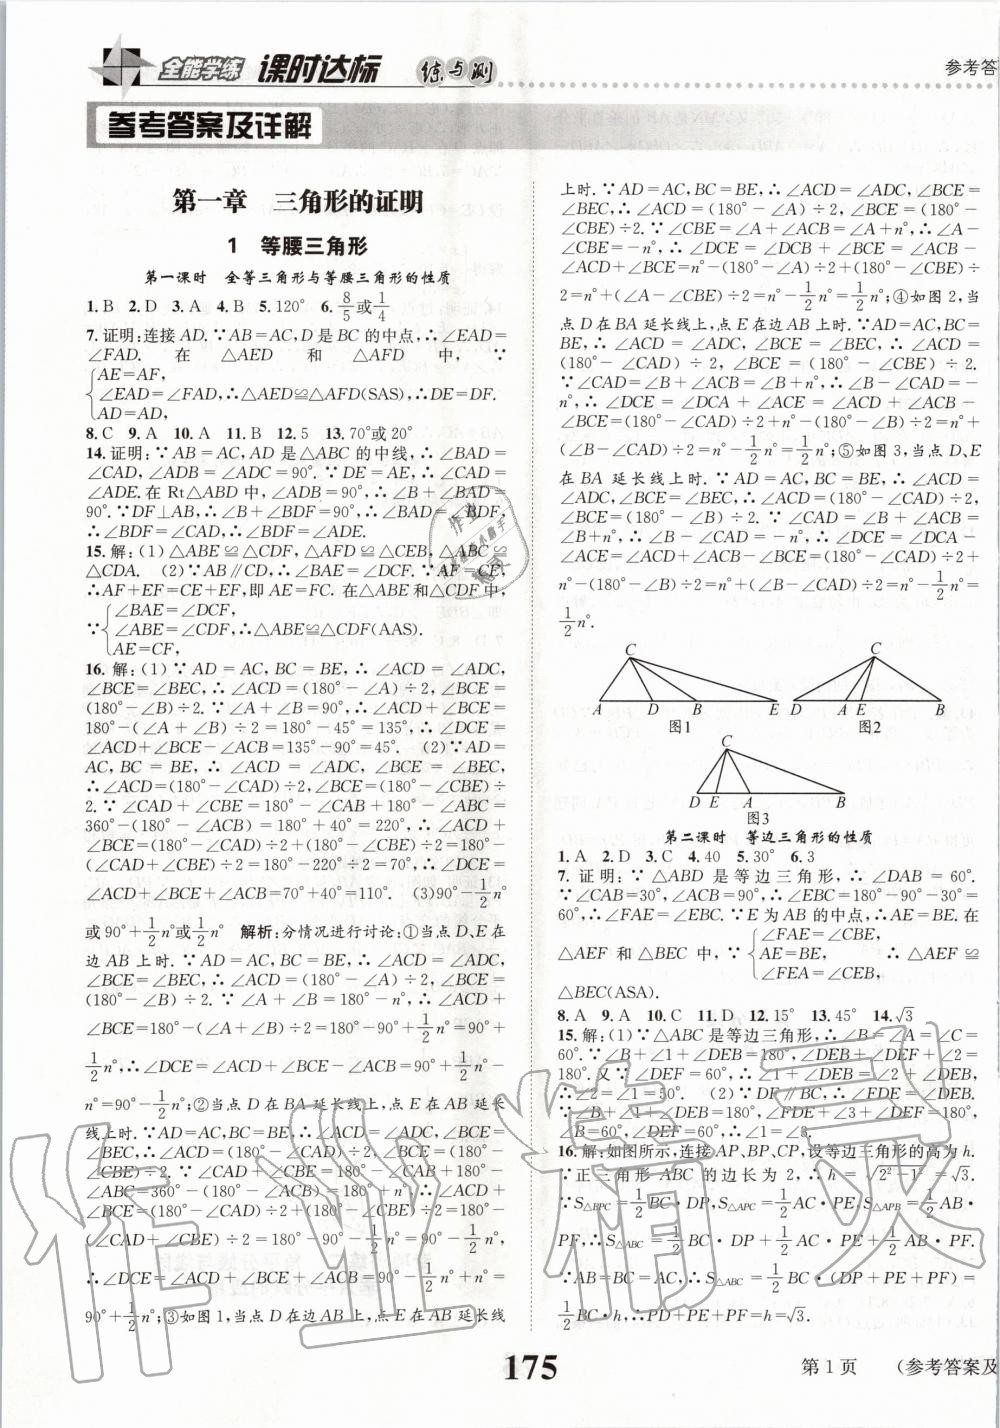 全能学练 课时达标 练与测
参考答
参考答案及详解
第一章 三角形的证明
1 等腰三角形
第一课时 全等三角形与等腰三角形的性质
1. B 2. D 3. A 4. B 5. 120° 6. 8/5或1/4
7. 证明:连接AD. ∵AB=AC,D是BC的中点,∴∠EAD=
∠FAD. 在 △AED 和 △AFD 中, ∵
AE=AF,
∠EAD=∠FAD,∴△AED≌△AFD(SAS),∴DE=DF.
AD=AD,
8. C 9. A 10. A 11. B 12. 5 13. 70°或20°
14. 证明:∵AB=AC,AD是△ABC的中线,∴∠BAD=
∠CAD,∠ADB=∠ADC=90°. ∵DE=AE,∴∠CAD=
∠ADE. 在Rt△ABD中,∠ADB=90°,∴∠B+∠BAD=
90°. ∵DF⊥AB,∴∠B+∠BDF=90°,∴∠BAD=∠BDF,
∴∠BDF=∠CAD,∴∠BDF=∠ADE.
15. 解:(1)△ABE≌△CDF,△AFD≌△CEB,△ABC≌
△CDA. (2)∵AB∥CD,∴∠BAE=∠DCF. ∵AF=CE,
∴AF+EF=CE+EF,即AE=FC. 在△ABE和△CDF中,
∠BAE=∠DCF,
∵ ∠ABE=∠CDF,∴△ABE≌△CDF(AAS).
AE=CF,
16. 解:(1)∵AD=AC,BC=BE,∴∠ACD=∠ADC,
∠BCE=∠BEC,∴∠ACD=(180°-∠A)÷2,∠BCE=
(180°-∠B)÷2. ∵∠A+∠B=90°,∴∠ACD+∠BCE=
180°-(∠A+∠B)÷2=180°-45°=135°,∴∠DCE=
∠ACD+∠BCE-∠ACB=135°-90°=45°. (2)∵AD=
AC,BC=BE,∴∠ACD=∠ADC,∠BCE=∠BEC,
∴∠ACD=(180°-∠CAD)÷2,∠BCE=(180°-∠CBE)÷
2. ∵∠CAD+∠CBE=180°-∠CAB+180°-∠ABC=
360°-(180°-∠ACB)=180°+40°=220°,∴∠ACD+
∠BCE=180°-(∠CAD)÷2+(180°-∠CBE)÷2=180°-
(∠CAD+∠CBE)÷2=180°-220°÷2=70°,∴∠DCE=
∠ACD+∠ACB+∠BCE=70°+40°=110°. (3)90°-1/2n°
或90°+1/2n°或1/2n° 解析:分情况进行讨论:①当点D、E在
边AB上时. ∵AD=AC,BC=BE,∴∠ACD=∠ADC,
∠BCE=∠BEC,∴∠ACD=(180°-∠A)÷2,∠BCE=
(180°-∠B)÷2. ∵∠A+∠B=180°-n°,∴∠ACD+
∠BCE=180°-(∠A+∠B)÷2=180°-90°+1/2n°=90°+
1/2n°,∴∠DCE=∠ACD+∠BCE-∠ACB=90°+1/2n°-
n°=90°-1/2n°;②当点D在BA延长线上,点E在AB延长
线上时. ∵AD=AC,BC=BE,∴∠ACD=∠ADC,∠BCE=
∠BEC,∴∠ACD=(180°-∠CAD)÷2,∠BCE=(180°-
∠CBE)÷2. ∵∠CAD+∠CBE=180°-∠CAB+180°-
∠ABC=360°-(180°-∠ACB)=180°+n°,∴∠ACD+
∠BCE=180°-(∠CAD)÷2+(180°-∠CBE)÷2=180°-
(∠CAD+∠CBE)÷2=180°-90°-1/2n°=90°-1/2n°,
∴∠DCE=∠ACD+∠ACB+∠BCE=90°-1/2n°+n°=
90°+1/2n°;③如图1,当点D在边AB上,点E在AB延长线
上时. ∵AD=AC,BC=BE,∴∠ACD=∠ADC,∠BCE=
∠BEC,∴∠ACD=(180°-∠A)÷2,∠BCE=(180°-
∠CBE)÷2. ∵∠CBE=∠A+∠ACB=∠A+n°,∴∠A-
∠CBE=-n°,∴∠DCE=∠DCB+∠BCE=∠ACB-
∠ACD+∠BCE=n°-(180°-∠A)÷2+(180°-∠CBE)÷
2=n°+(∠A-∠CBE)÷2=n°-1/2n°=1/2n°;④如图2,当
点D在BA延长线上,点E在边AB上时. ∵AD=AC,BC=
BE,∴∠ACD=∠ADC,∠BCE=∠BEC,∴∠ACD=
(180°-∠CAD)÷2,∠BCE=(180°-∠CBE)÷2.
∵∠CAD=∠B+∠ACB=∠B+n°,∴∠B-∠CAD=-
n°,∴∠DCE=∠DCA+∠ACE=∠ACD+∠ACB-
∠BCE=(180°-∠CAD)÷2+n°-(180°-∠B)÷2=n°+
(∠B-∠CAD)÷2=n°-1/2n°=1/2n°;⑤如图3,当点D、E
在BA延长线上时. ∵AD=AC,BC=BE,∴∠ACD=
∠ADC,∠BCE=∠BEC,∴∠ACD=(180°-∠CAD)÷2,
∠BCE=(180°-∠B)÷2. ∵∠CAD=∠B+∠ACB=
∠B+n°,∴∠B-∠CAD=-n°,∴∠DCE=∠DCA-
∠ACE=∠ACD+∠ACB-∠BCE=(180°-∠CAD)÷2+
n°-(180°-∠B)÷2=n°+(∠B-∠CAD)÷2=n°-1/2n°=
1/2n°.
C
A D B E
图1
C
D A E B
图2
C
D E A B
图3
第二课时 等边三角形的性质
1. A 2. D 3. C 4. 40 5. 30° 6. 3
7. 证明:∵△ABD是等边三角形,∴∠DAB=60°.
∵∠CAB=30°,∠ACB=90°,∴∠EBC=180°-90°-30°=
60°,∴∠FAE=∠EBC. ∵E为AB的中点,∴AE=BE. 在
∠FAE=∠CBE,
△AEF和△BEC中,∵ AE=BE, ∴△AEF≌
∠FEA=∠CEB,
△BEC(ASA).
8. A 9. A 10. C 11. D 12. 15° 13. 45° 14. √3
15. 解:(1)∵△ABC是等边三角形,∴∠B=∠A=∠C=
60°. ∵∠B+∠1+∠DEB=180°,∠DEB+∠DEF+∠2=
180°. 又∵∠DEF=60°,∴∠1+∠DEB=∠2+∠DEB=
120°,∴∠2=∠1=50°. (2)∵DF∥BC,∴∠FDE=∠DEB.
∵∠B+∠1+∠DEB=180°,∠FDE+∠3+∠DEF=180°,
∠B=60°,∠DEF=60°,∴∠1=∠3.
16. 解:如图所示,连接AP、BP、CP,设等边三角形的高为h.
∵正三角形ABC的边长为2,∴h=√2²-1²=√3.
∵S△BPC=1/2BC·DP,S△APC=1/2AC·PE,S△APB=1/2AB·
PF,∴S△ABC=1/2BC·DP+1/2AC·PE+1/2AB·PF.
∵AB=BC=AC,∴S△ABC=1/2BC·(DP+PE+PF)=
1/2BC·h,∴PD+PE+PF=h=√3.
175
第1页 (参考答案及
作业精灵